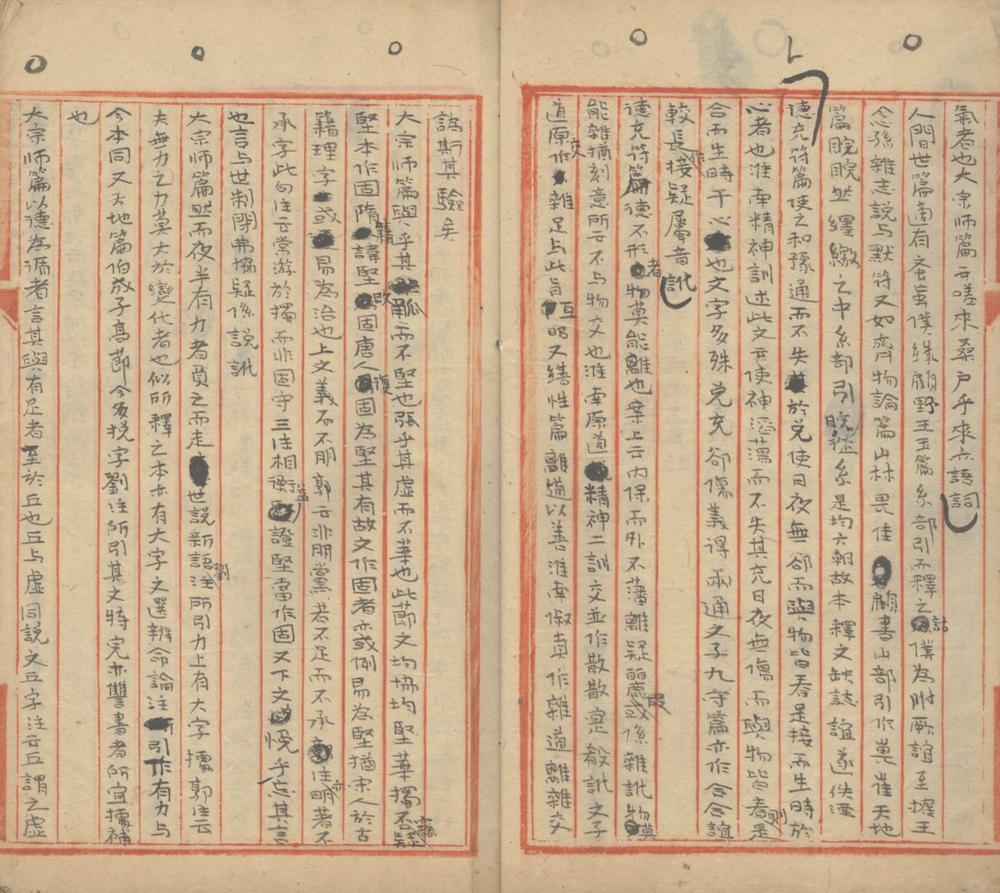 氣者也大宗師篇云嗟來桑戶乎來亦語詞
人閒世篇適有蚉蝱僕緣顧野王玉篇糸部引而釋之詁僕為附厥誼至搉王
念孫雜志說与默符又如齊物論篇山林畏佳顧書山部引作嵔崔天地
篇睆睆然纆繳之中糸部引睆從糸是均六朝故本釋文缺誌誼遂佚湮
德充符篇使之和豫通而不失於兌使日夜無郤而與物皆春是接而生時於
心者也淮南精神訓述此文云使神滔蕩而不失其充日夜無傷而與物皆春則是
合而生時于心也文字多殊兌充郤傷義得兩通文子九守篇亦作合合誼
較長作接疑屬音訛
德充符篇德不形者物莫能離也案上云內保而外不蕩離疑麗叚或係雜訛物莫
能雜猶刻意所云不与物交也淮南原道精神二訓交並作散散寔殽訛文子
道原作雜足与此旨互明又繕性篇離道以善淮南俶真作雜道離雜交
譌斯其驗矣
大宗師篇與乎其觚而不堅也張乎其虛而不華也此節之均協均堅華獨否竊疑
堅本作固隋籍諱堅改固唐人復固為堅其有故文作固者亦或例易為堅猶宋人於古
籍理字或易為治也上文義而不朋郭云非朋黨若不足而不承注明著不
承字此句注云常游於獨而非固守三注相衡益證堅當作固又下文悗乎忘其言
也言与世制閉弗協疑係說訛
大宗師篇然而夜半有力者負之而走世說新語劉注所引力上有大字據郭注云
夫無力之力莫大於變化者也似所釋之本亦有大字文選辨命論注引作有力与
今本同又天地篇伯成子高節今多挩字劉注所引其文特完亦讎書者所宜據補
也
大宗師篇以德為循者言其與有足者至於丘也丘与虛同說文丘字注云丘謂之虛